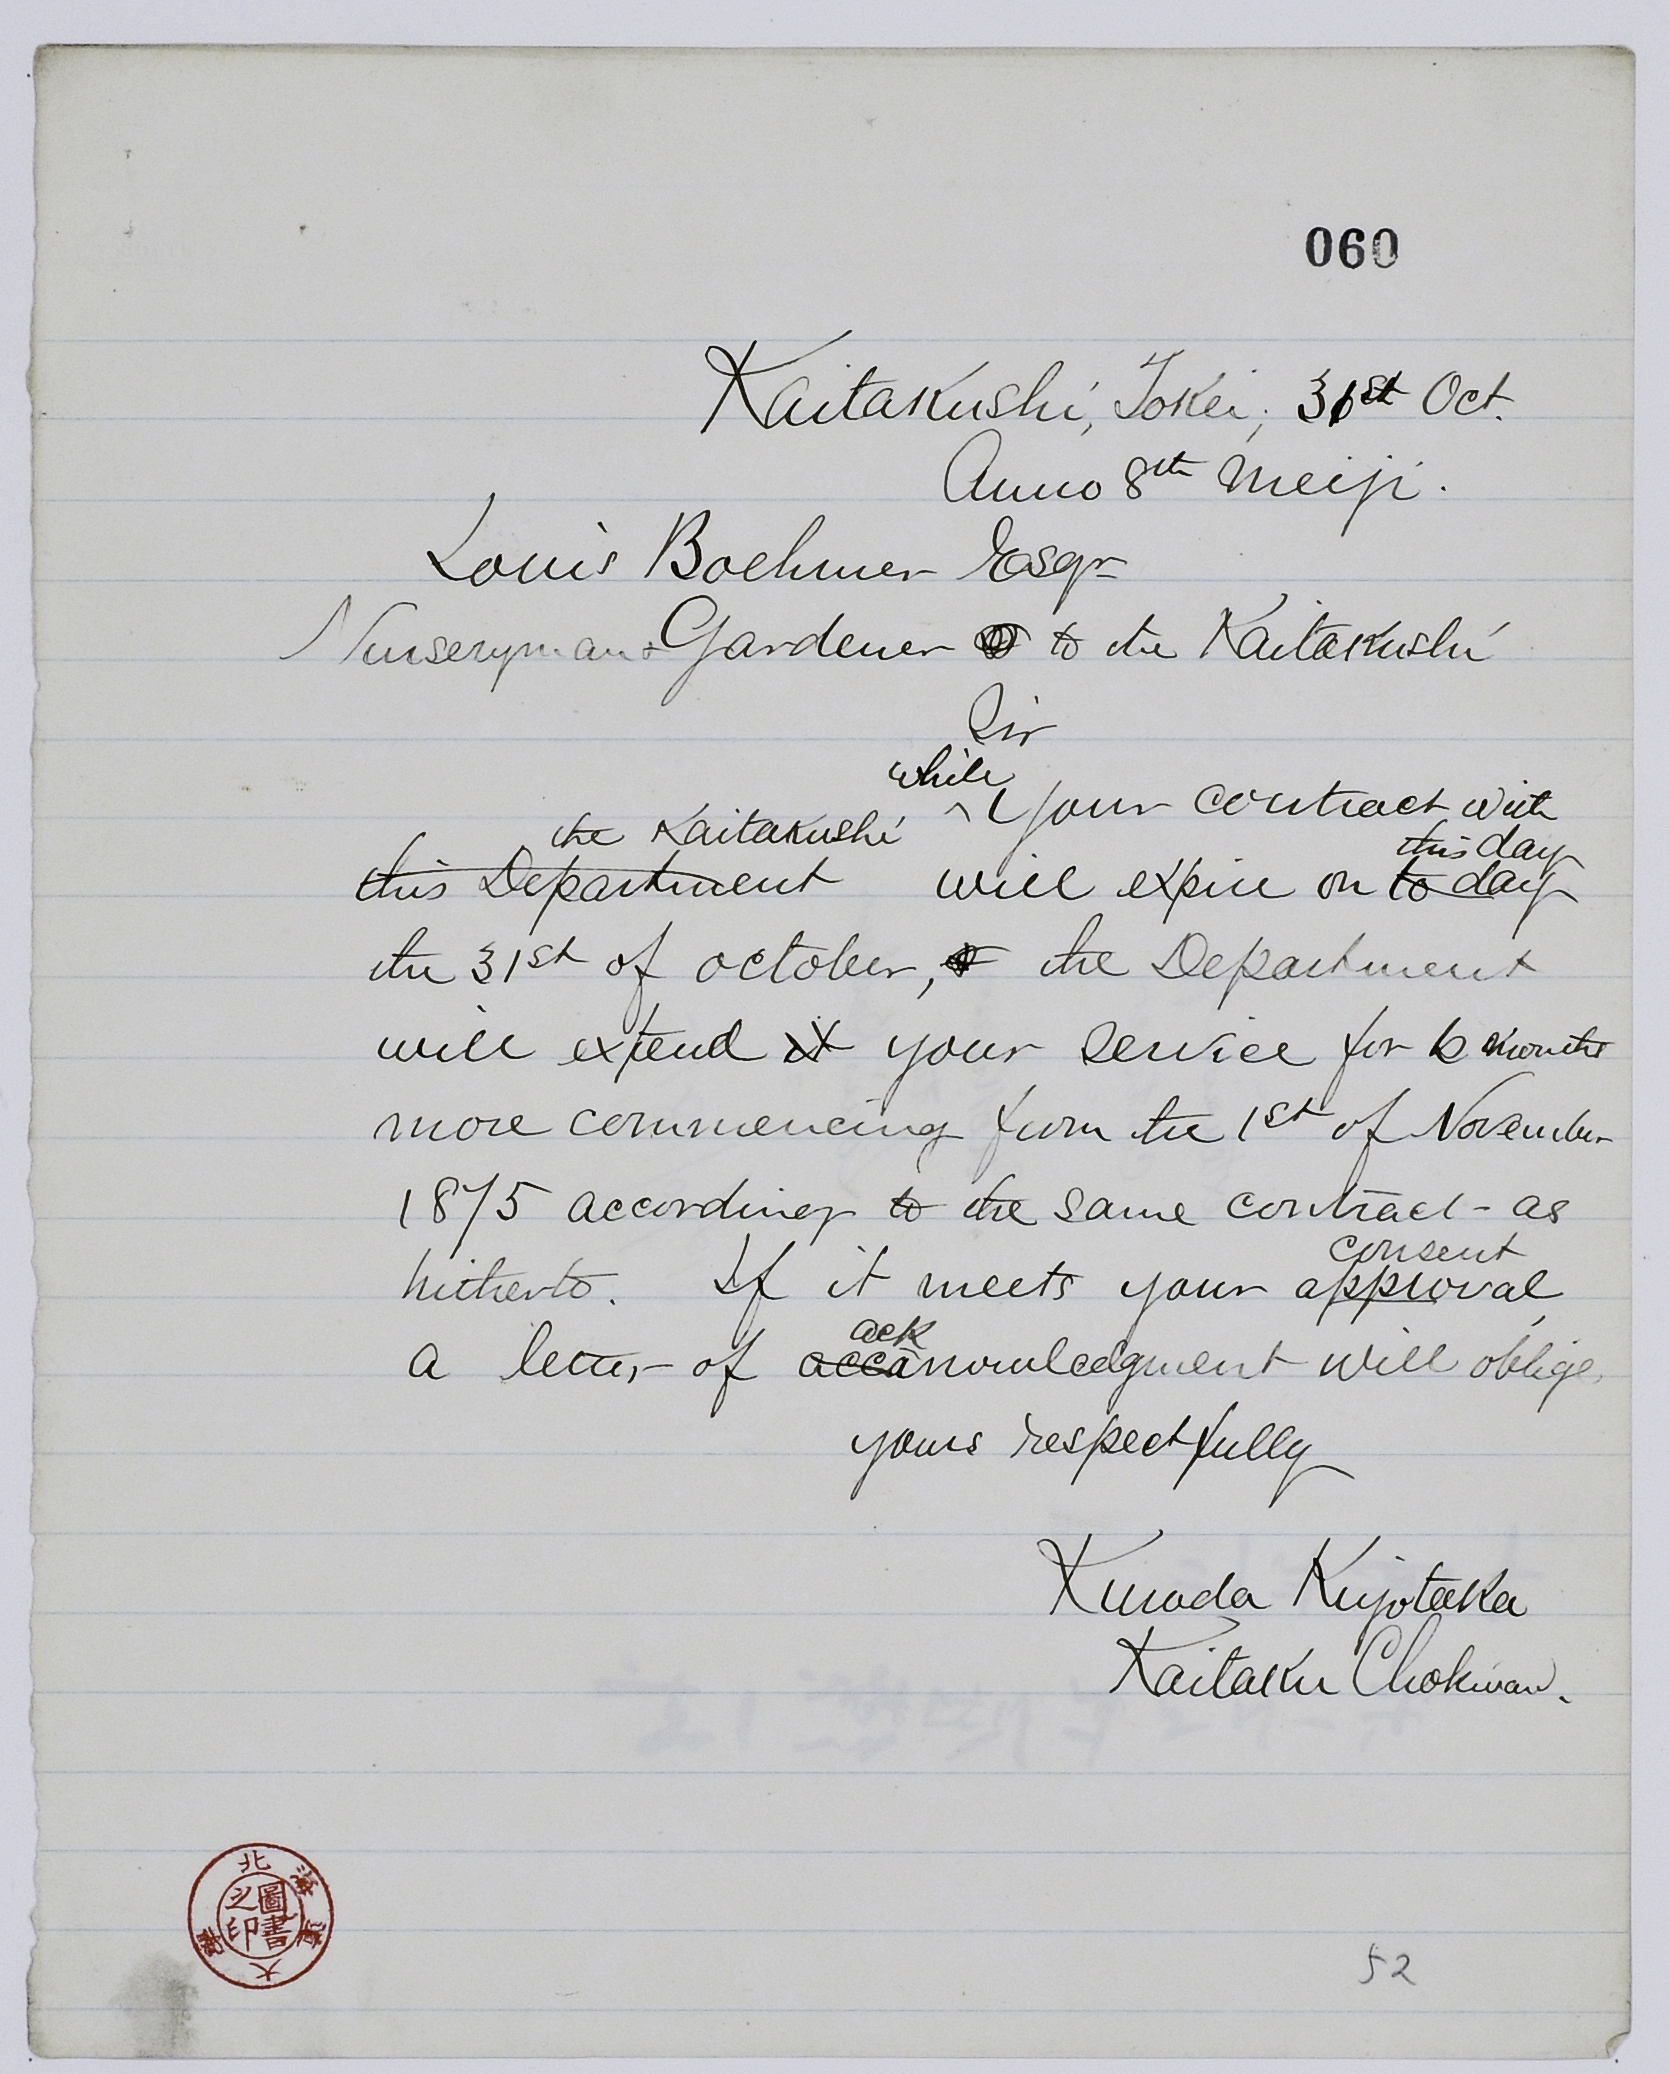 060
Kaitakushi, Tokei, 31st Oct.
Anno 8th Meiji.
Louis Boehmer Esqr
Nurseryman & Gardener to the Kaitakushi
Sir
while
Your contract with
the Kaitakushi
this day
this Department will expire on to day
the 31st of october, the Department
will extend it your service for 6 months
more commencing from the 1st of November
1875 according to the same contract as
hitherto. If it meets your approval,
consent
ack
a letter of accanowledgment will oblige.
yours respectfully
Kuroda Kiyotaka
Kaitaku Chokwan.
北海道大學
圖書之印
52